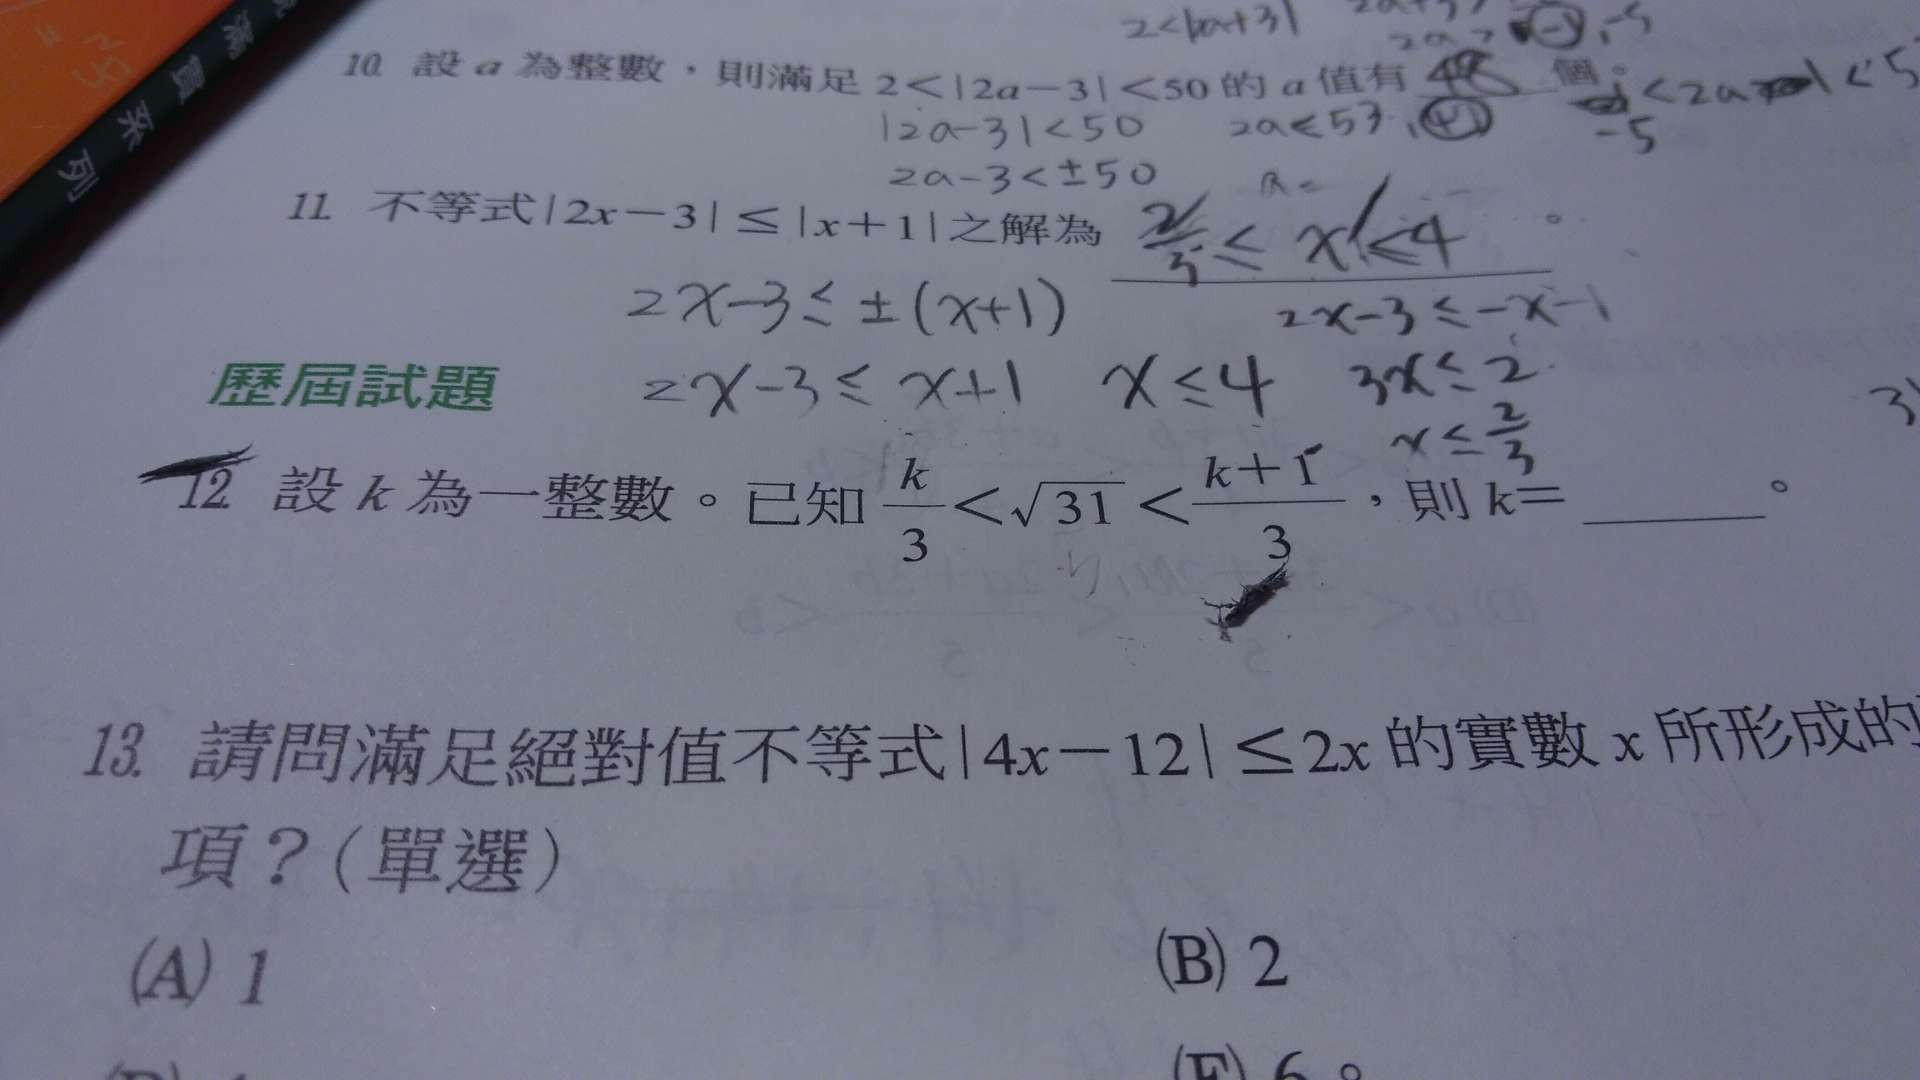 實系列
2<|2a+3|
10. 設 a 為整數，則滿足 2<|2a－3|<50 的 a 值有 48 個。
|2a-3|<50 2a<53
2a-3<±50
-5
11. 不等式|2x－3|≤|x＋1|之解為 2/3 ≤ x ≤4 。
2x-3≤ ±(x+1) 2x-3≤-x-1
歷屆試題 2x-3≤ x+1 x≤4 3x≤2
x≤2/3
12. 設 k 為一整數。已知 k/3 <√31< k＋1/3 ，則 k＝ ______。
13. 請問滿足絕對值不等式|4x－12|≤2x 的實數 x 所形成的
項？(單選)
(A) 1 (B) 2
(E) 6。